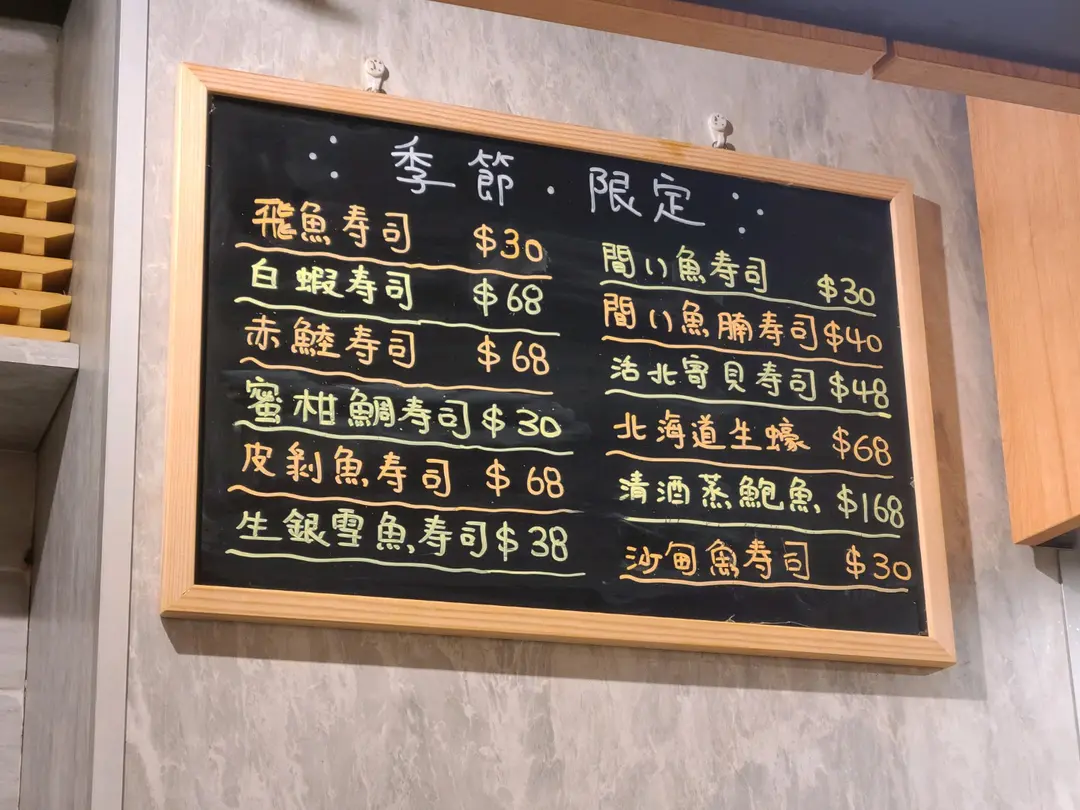 季節·限定
飛魚寿司 $30
白蝦寿司 $68
赤鯥寿司 $68
蜜柑鯛寿司 $30
皮剝魚寿司 $68
生銀雪魚寿司 $38
間八魚寿司 $30
間八魚腩寿司 $40
活北寄貝寿司 $48
北海道生蠔 $68
清酒蒸鮑魚 $168
沙甸魚寿司 $30